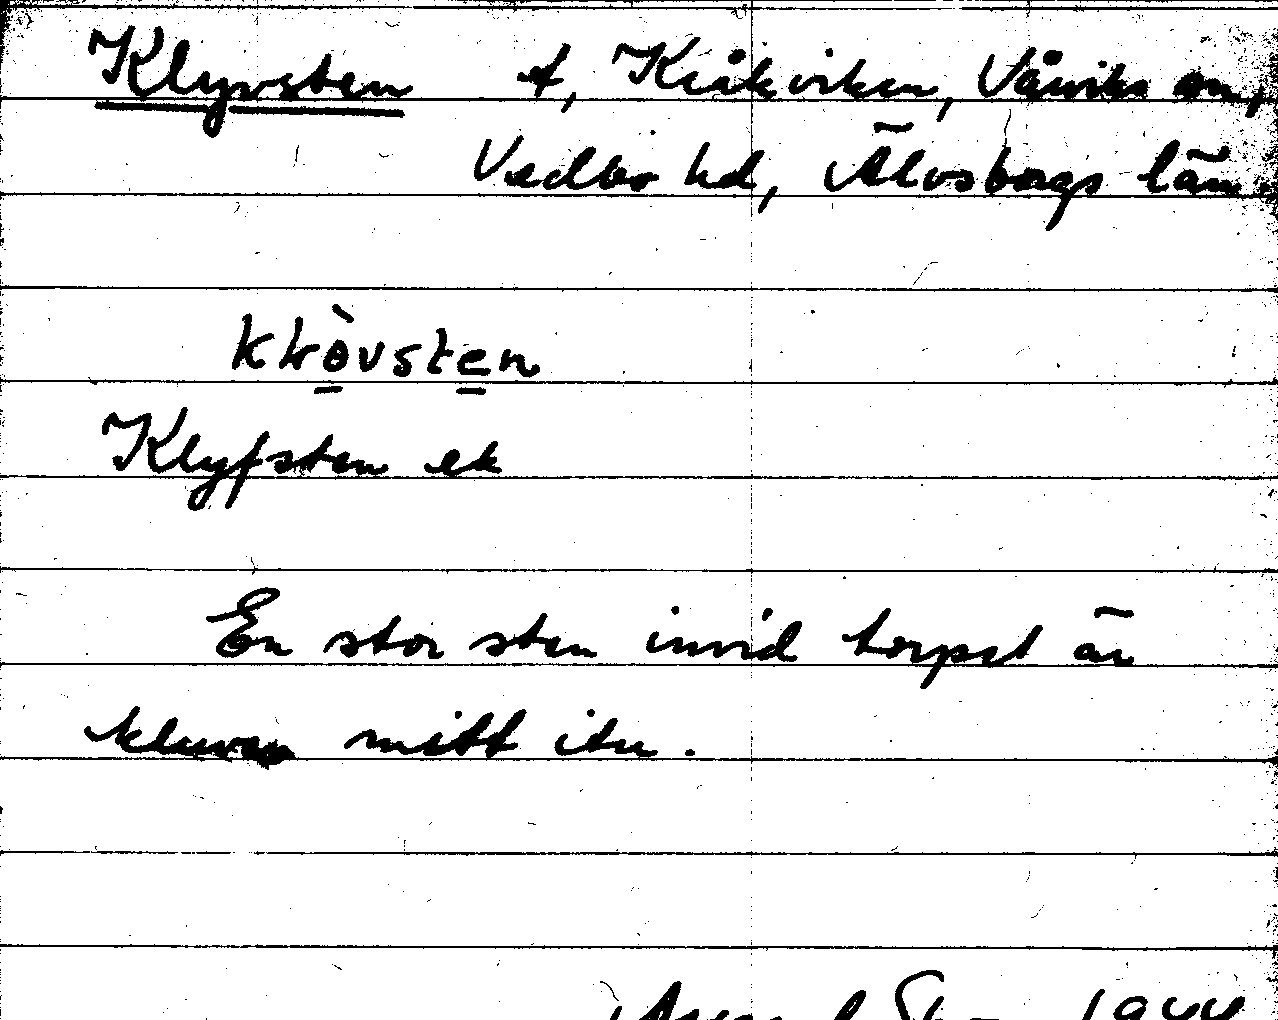 Klyvsten t, Kråkviken, Vårviks sn,
Vedbo hd, Älvsborgs län
klövsten
Klyfsten ek
En stor sten invid torpet är
kluven mitt itu.
1944